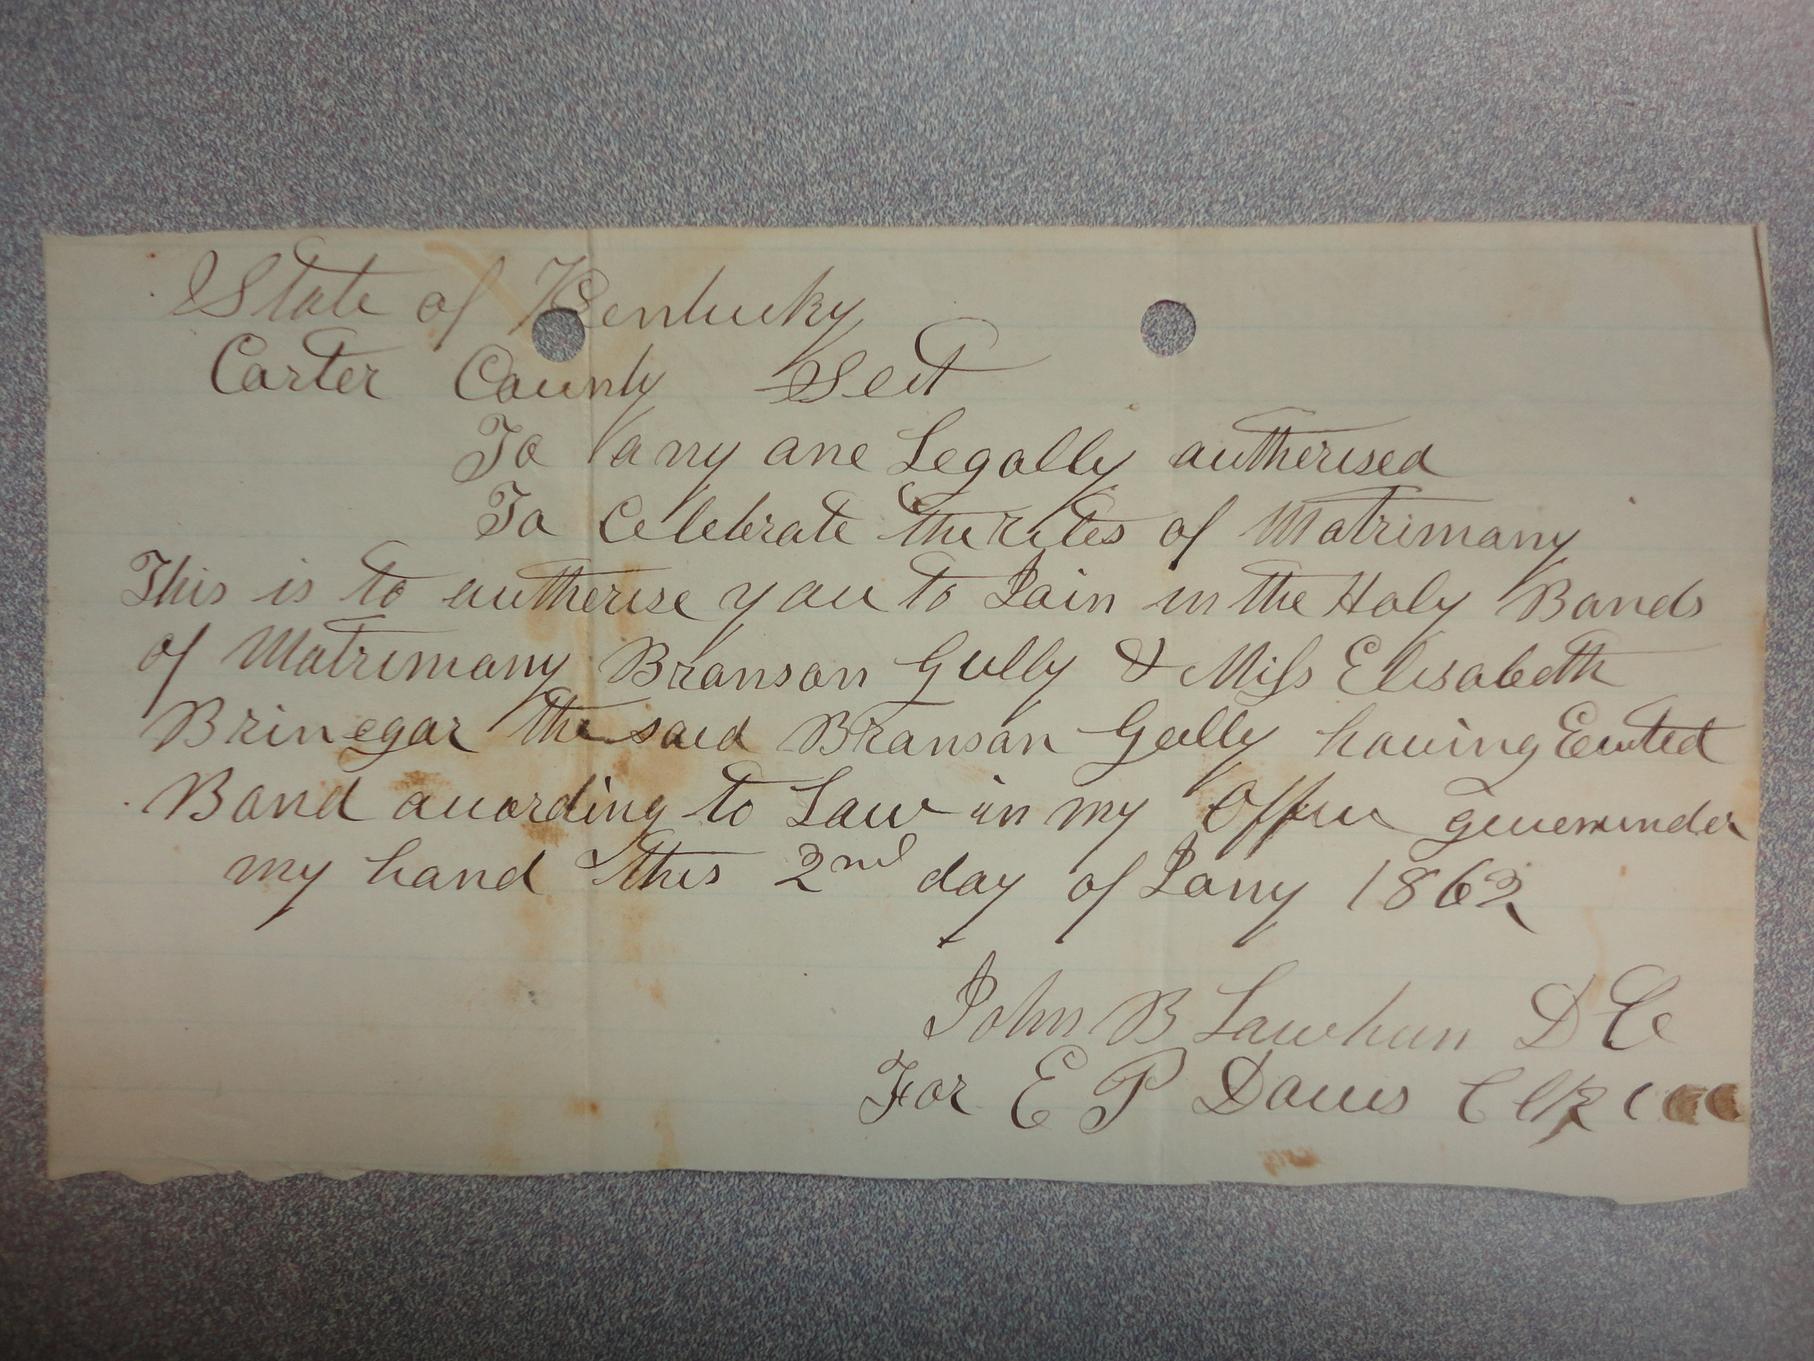 State of Kentucky
Carter County Sect
To any one Legally autherised
To Celebrate the rites of Matrimony
This is to autherise you to Join in the Holy Bonds
of Matrimony Branson Gully & Miss Elisabeth
Brinegar the said Branson Gully having Exuted
Bond according to Law in my Office given under
my hand this 2nd day of Jany 1862
John B Lawhun D C
For E P Davis Clk C